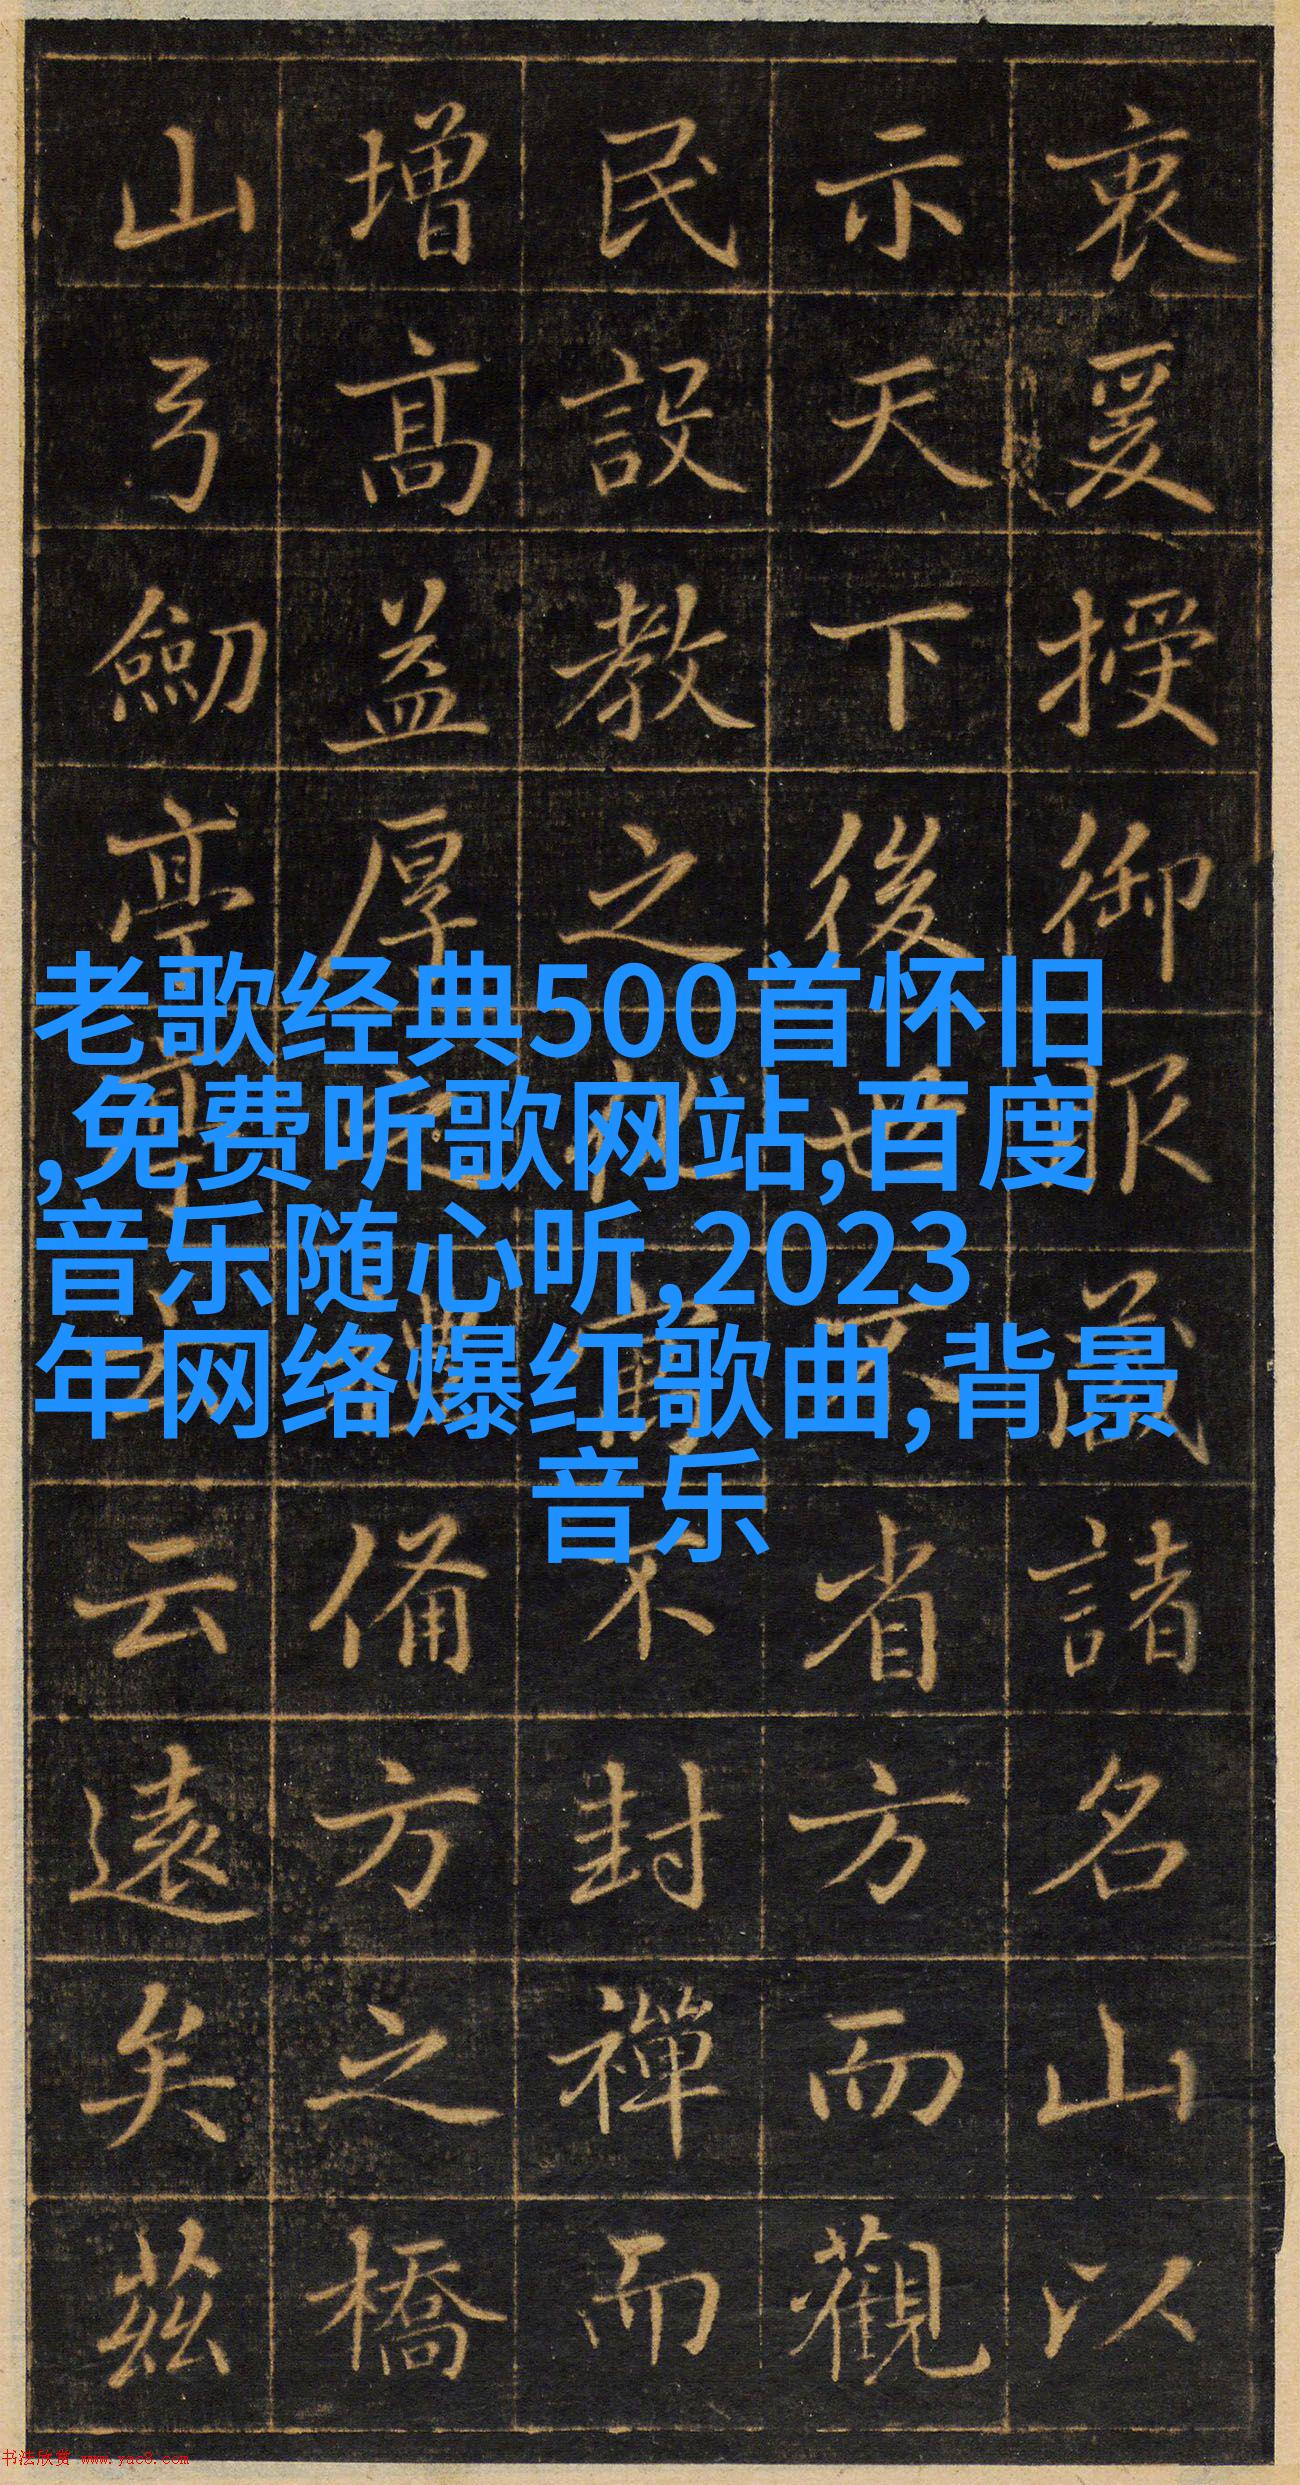 衷爰授御服藏諸名山以
示天下後世省方而觀
民設教之不封禪而
增高益厚備方之橋
山弓劒亭云遠矣茲
老歌经典500首怀旧
,免费听歌网站,百度
音乐随心听,2023
年网络爆红歌曲,背景
音乐
书法欣赏 www.yac8.com